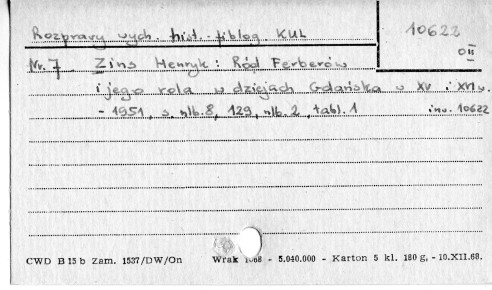 Rozprawy wych. hist.-filolog. KUL 10622
OII
Nr. 7 Zins Henryk: Ród Ferberów
i jego rola w dziejach Gdańska w XV i XVI w.
- 1951, s. nlb. 8, 129, nlb. 2, tabl. 1 inw. 10622
CWD B 15 b Zam. 1537/DW/On Wrak 1068 - 5.040.000 - Karton 5 kl. 180 g, - 10.XII.68.